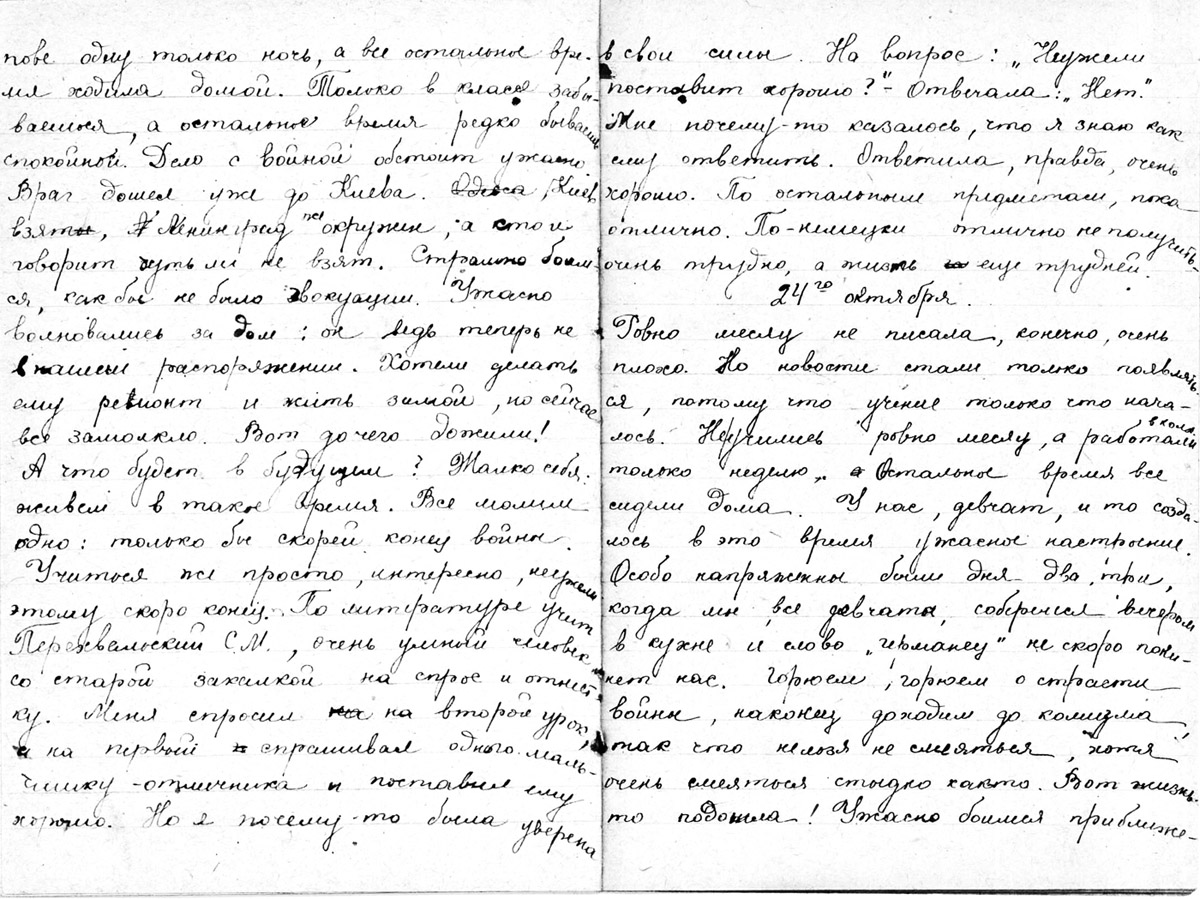 пове одну только ночь, а все остальное вре-
мя ходила домой. Только в классе забы-
ваешься, а остальное время редко бываешь
спокойной. Дело с войной обстоит ужасно.
Враг дошел уже до Киева. Одесса, Киев
взяты, Ленинград же окружен, а кто и
говорит чуть ли не взят. Страшно боим-
ся, как бы не было эвокуации. Ужасно
волновались за дом: он ведь теперь не
в нашем распоряжении. Хотели делать
ему ремонт и жить зимой, но сейчас
все замолкло. Вот до чего дожили!
А что будет в будущем? Жалко себя:
живем в такое время. Все молим
одно: только бы скорей конец войны.
Учиться же просто, интересно, неужели
этому скоро конец. По литературе учит
Перехвальский С.М., очень умный человек
со старой закалкой на спрос и отмет-
ку. Меня спросил на на второй урок,
а на первый спрашивал одного маль-
чишку-отличника и поставил ему
хорошо. Но я почему-то была уверена
в свои силы. На вопрос: „Неужели
поставит хорошо?" - Отвечала: „Нет".
Мне почему-то казалось, что я знаю как
ему ответить. Ответила, правда, очень
хорошо. По остальным предметам, пока
отлично. По-немецки отлично не получить -
очень трудно, а жизнь еще трудней.
24го октября.
Ровно месяц не писала, конечно, очень
плохо. Но новости стали только появлять-
ся, потому что учение только что нача-
лось. Не учились ровно месяц, а работали в колх.
только неделю, Остальное время все
сидели дома. У нас, девчат, и то созда-
лось в это время ужасное настроение.
Особо напряженны были дня два, три,
когда мы, все девчаты, соберемся вечером
в кухне и слово „германец" не скоро поки-
нет нас. Горюем, горюем о страсти
войны, наконец доходим до комизма,
так что нельзя не смеяться, хотя
очень смеяться стыдно както. Вот жизнь-
то подошла! Ужасно боимся приближе-